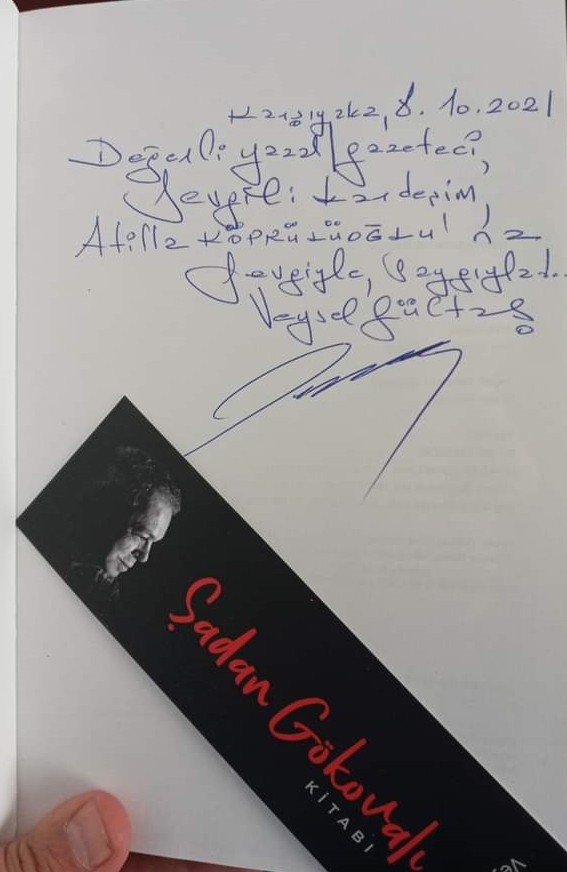 Karşıyaka, 8.10.2021
Değerli yazar/gazeteci,
Sevgili kardeşim,
Atilla KÖPRÜLÜOĞLU'na
Sevgiyle, Saygıyla..
Veysel Gültaş
Şadan Gökovalı
KİTABI